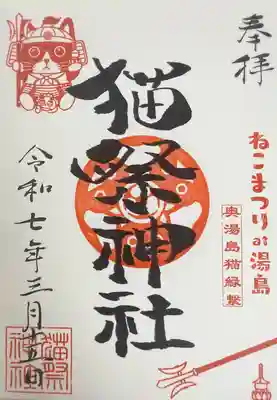 奉拝
ねこまつりat湯島
奥湯島猫縁繋
猫祭神社
令和七年三月十五日
猫祭
神社